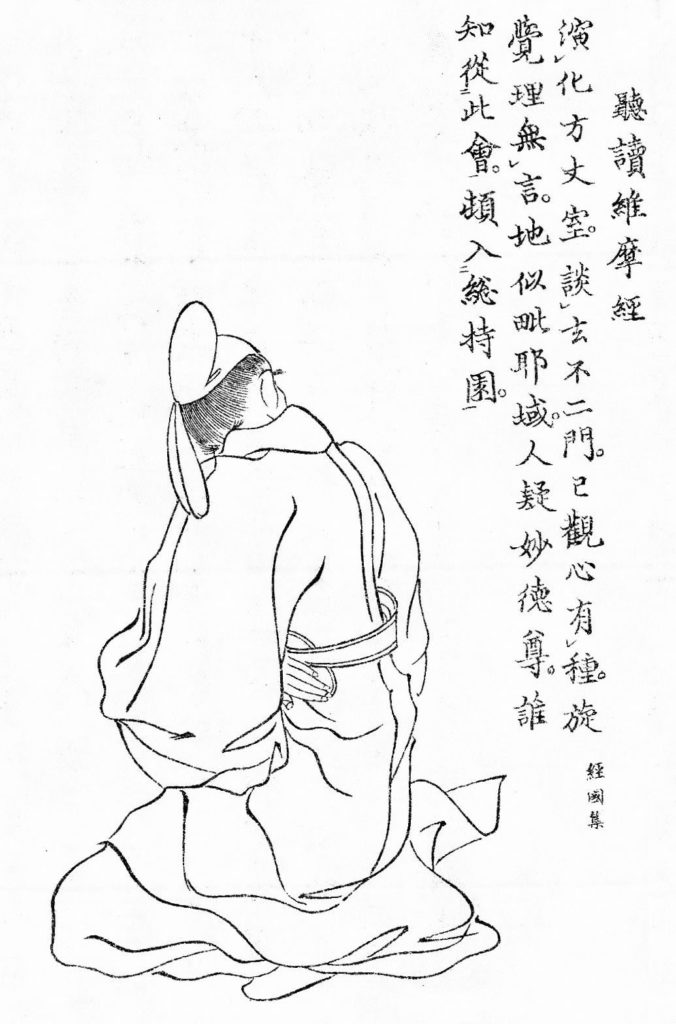 聽讀維摩經
演㆑化方丈室。談㆑玄不二門。已觀心有㆑種。旋
覺理無㆑言。地似毗耶域。人疑妙徳尊。誰
知從㆓此會㆒。頓入㆓総持園㆒。
經國集